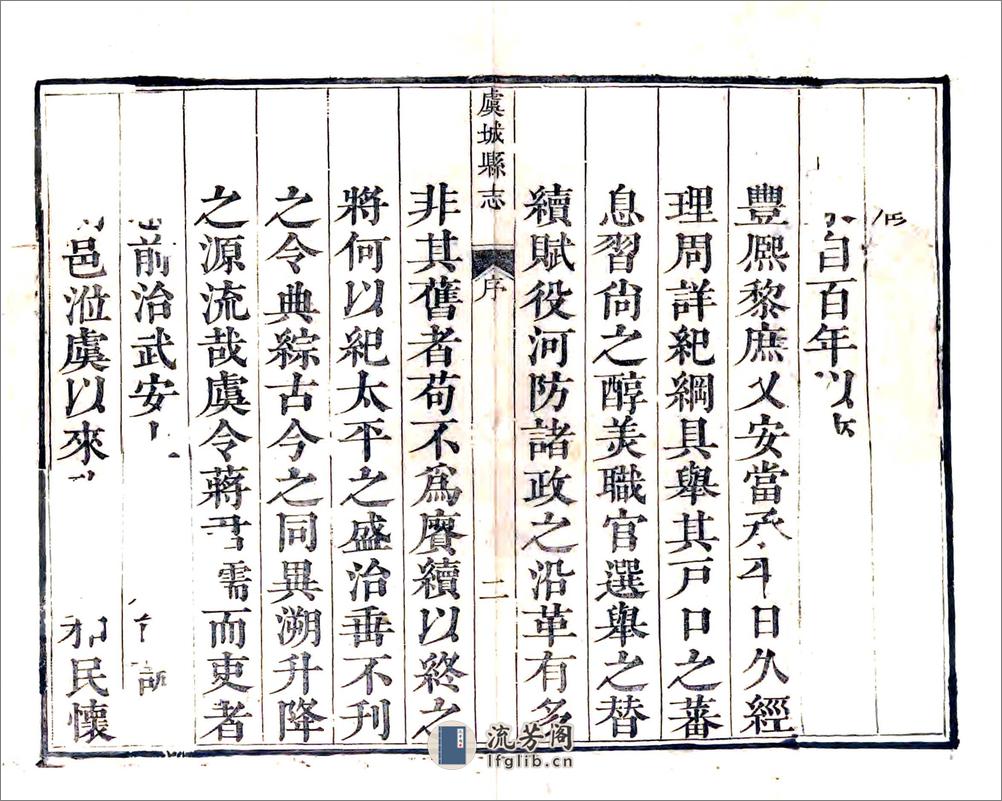 自百年以
豐熈黎庶乂安當承平日久經
理周詳紀綱具舉其戸口之蕃
息習尙之醇美職官選舉之替
續賦役河防諸政之沿革有多
虞城縣志
序
二
非其舊者苟不爲賡續以終之
將何以紀太平之盛治垂不刋
之令典綜古今之同異溯升降
之源流哉虞令蔣君需而吏者
前治武安
邑涖虞以來
和民懷
流芳阁
lfglib.cn